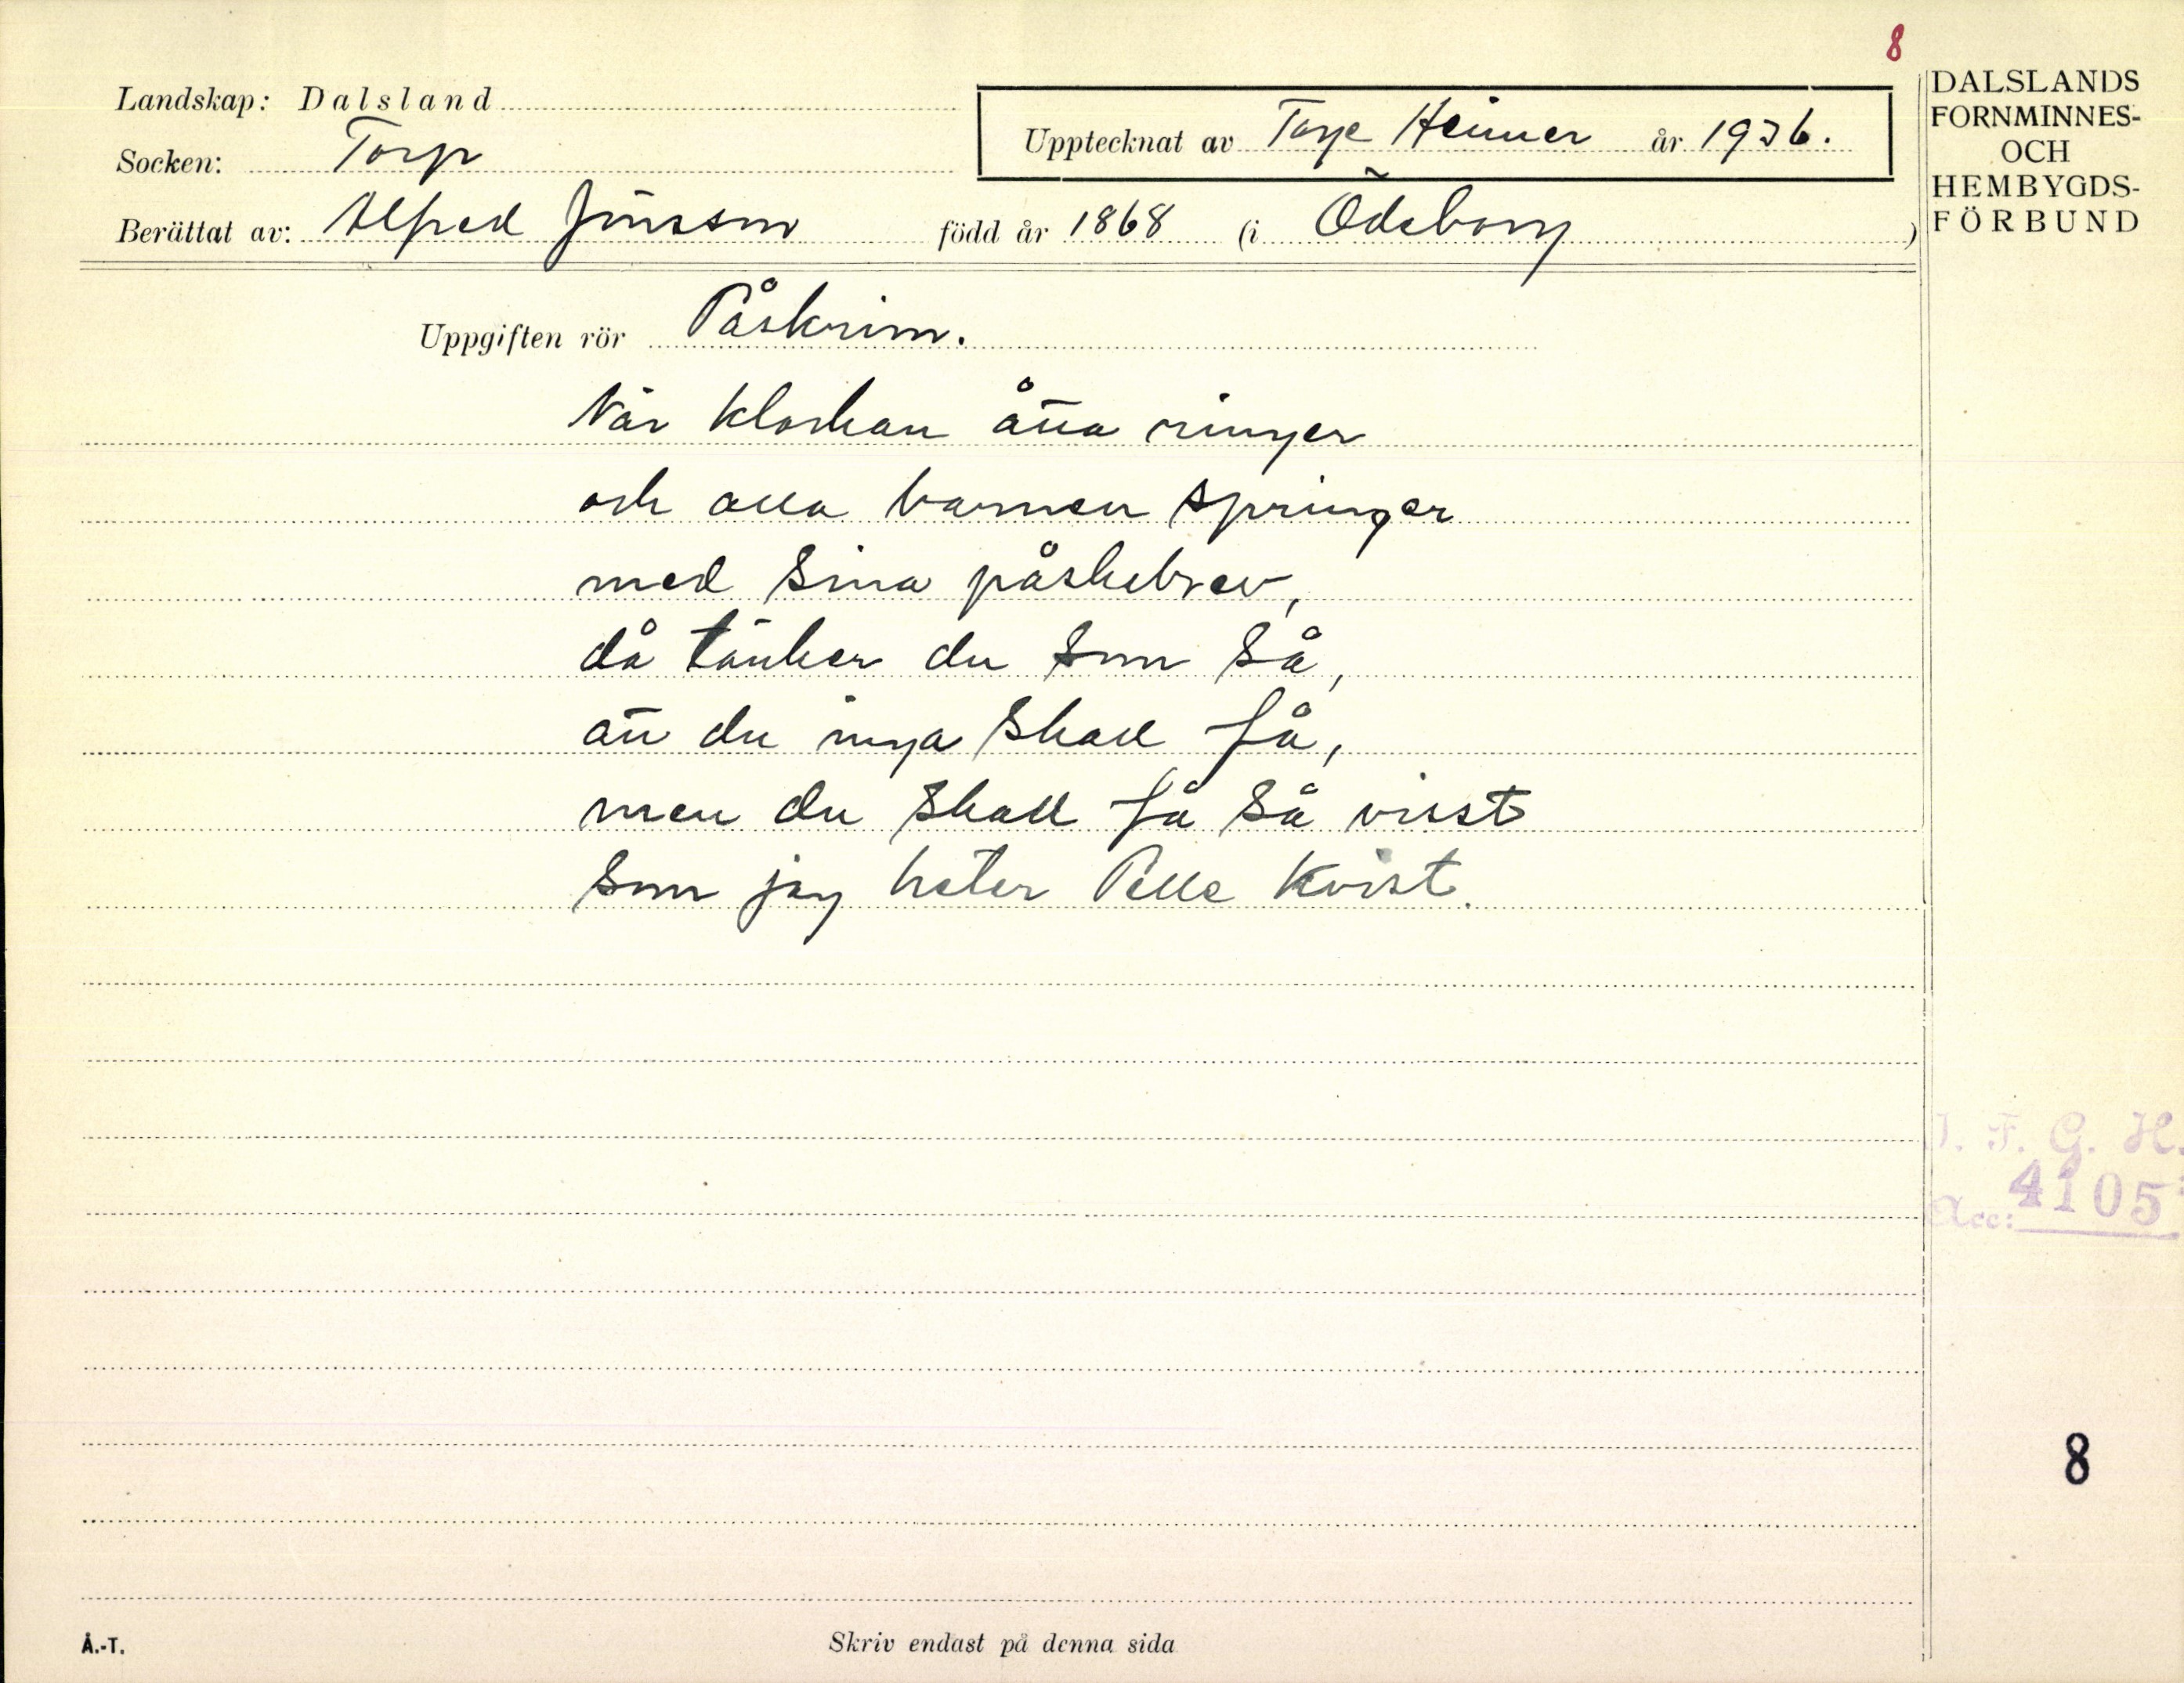 8
DALSLANDS
FORNMINNES-
OCH
HEMBYGDS-
FÖRBUND
Landskap: Dalsland
Upptecknat av Tage Heimer år 1936.
Socken: Torp
Berättat av: Alfred Jönsson född år 1868 (i Ödeborg)
Uppgiften rör Påskrim.
När klockan åtta ringer
och alla barnen springer
med sina påskebrev,
då tänker du som så,
att du inga skall få,
men du skall få så visst
som jag heter Pelle Kvist.
I. F. G. H.
Acc: 4105
8
Å.-T.
Skriv endast på denna sida